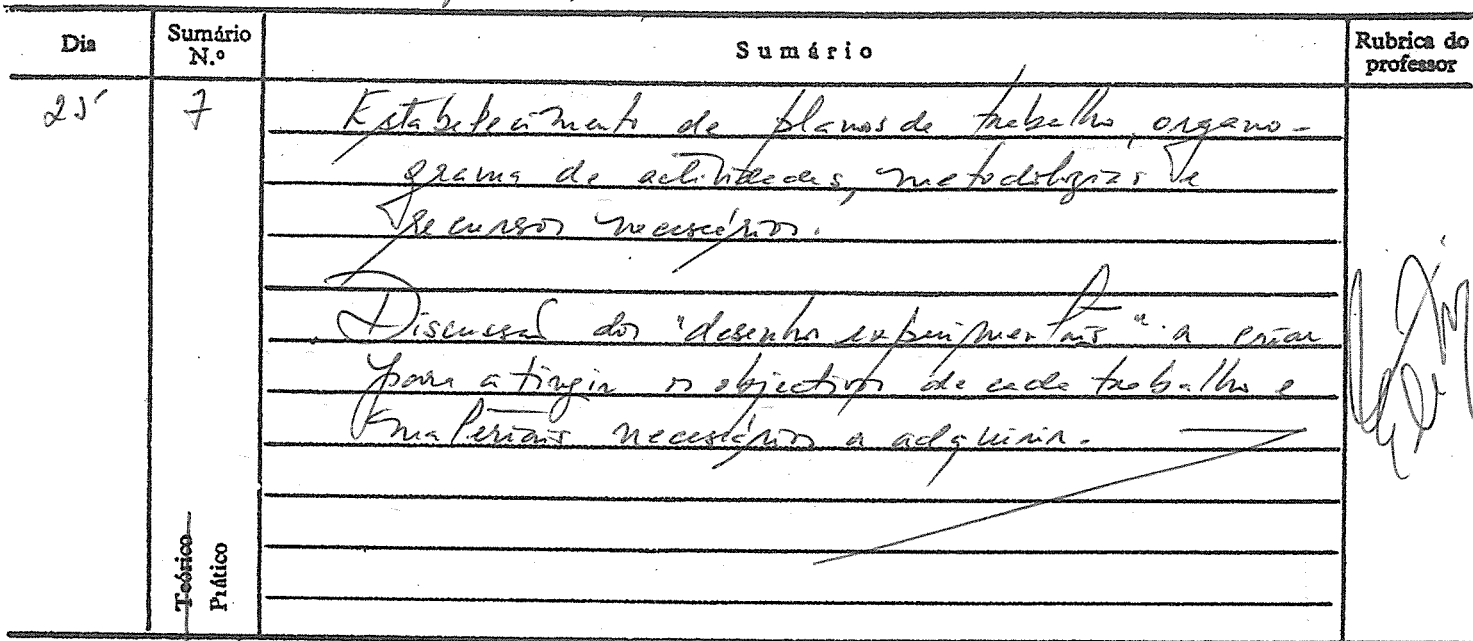 Dia
Sumário N.º
Sumário
Rubrica do professor
25
7
Estabelecimento de planos de trabalho, organo-
grama de actividades, metodologias e
recursos necessários.
Discussão dos "desenhos experimentais" a criar
para atingir os objectivos de cada trabalho e
materiais necessários a adquirir.
Teórico
Prático